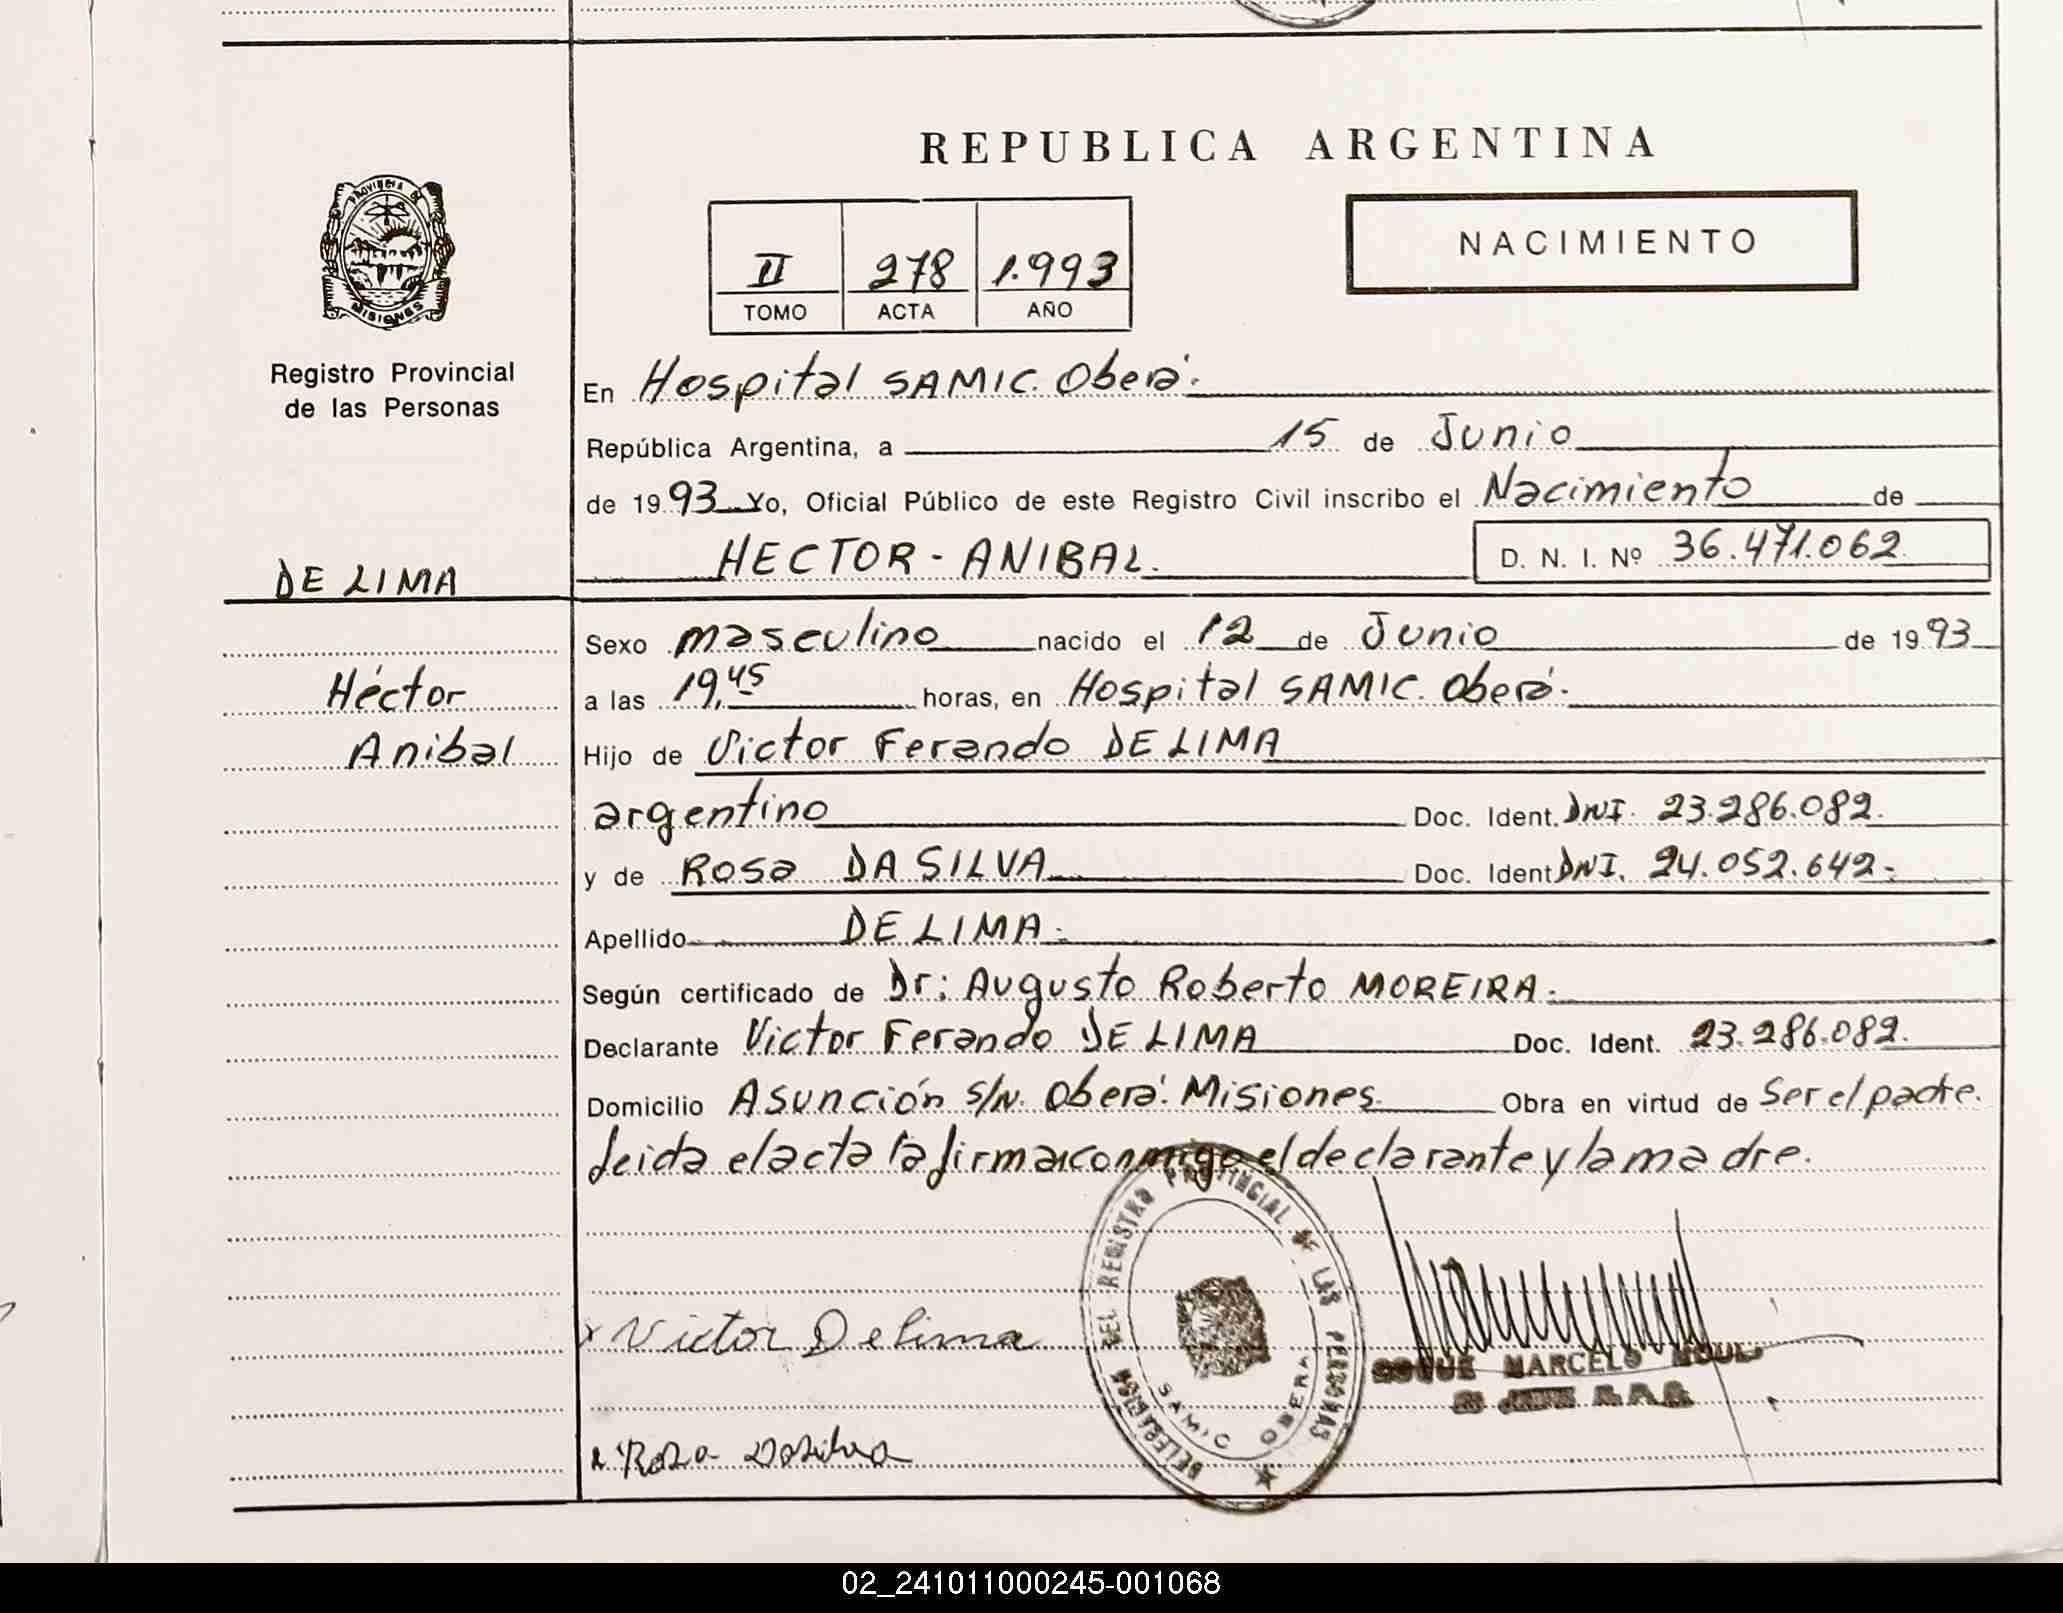 REPUBLICA ARGENTINA
PROVINCIA DE
MISIONES
Registro Provincial
de las Personas
II 278 1.993
TOMO ACTA AÑO
NACIMIENTO
En Hospital SAMIC. Oberá.
República Argentina, a 15 de Junio
de 1993 Yo, Oficial Público de este Registro Civil inscribo el Nacimiento de
HECTOR - ANIBAL. D. N. I. Nº 36.471.062
DE LIMA
Héctor
Anibal
Sexo masculino nacido el 12 de Junio de 1993
a las 19,45 horas, en Hospital SAMIC. Oberá.
Hijo de Victor Ferando DE LIMA
argentino Doc. Ident. DNI. 23.286.082.
y de Rosa DA SILVA Doc. Ident DNI. 24.052.642-
Apellido DE LIMA.
Según certificado de Dr: Augusto Roberto MOREIRA.
Declarante Victor Ferando DE LIMA Doc. Ident. 23.286.082.
Domicilio Asunción s/N. Oberá. Misiones Obra en virtud de Ser el padre.
Leida el acta la firman conmigo el declarante y la madre.
DELEGACION DEL REGISTRO PROVINCIAL DE LAS PERSONAS
SAMIC OBERA
Victor Delima
MARCELO
Rosa Dasilva
02_241011000245-001068